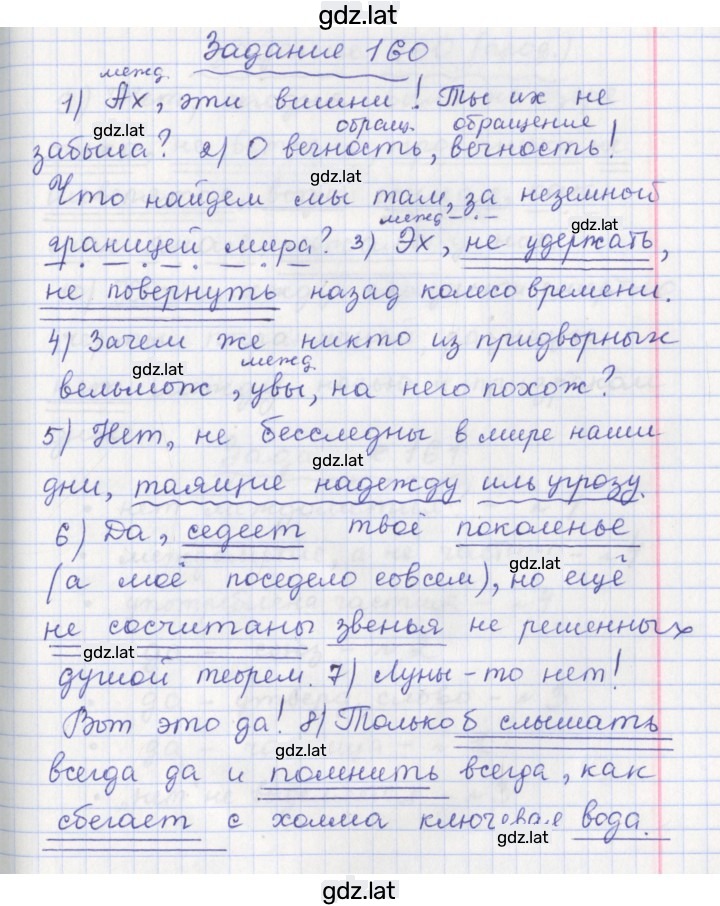 gdz.lat
Задание 160
межд.
1) Ах, эти вишни! Ты их не
gdz.lat
обращ. обращение
забыла? 2) О вечность, вечность!
gdz.lat
Что найдем мы там, за неземной
межд.
gdz.lat
границей мира? 3) Эх, не удержать,
не повернуть назад колесо времени.
4) Зачем же никто из придворных
gdz.lat
межд.
вельмож, увы, на него похож?
5) Нет, не бесследны в мире наши
gdz.lat
дни, таящие надежду иль угрозу.
6) Да, седеет твоё поколенье
gdz.lat
(а моё поседело совсем), но ещё
не сосчитаны звенья не решенных
gdz.lat
душой теорем. 7) Луны-то нет!
Вот это да! 8) Только б слышать
gdz.lat
всегда да и помнить всегда, как
сбегает с холма ключевая вода.
gdz.lat
gdz.lat